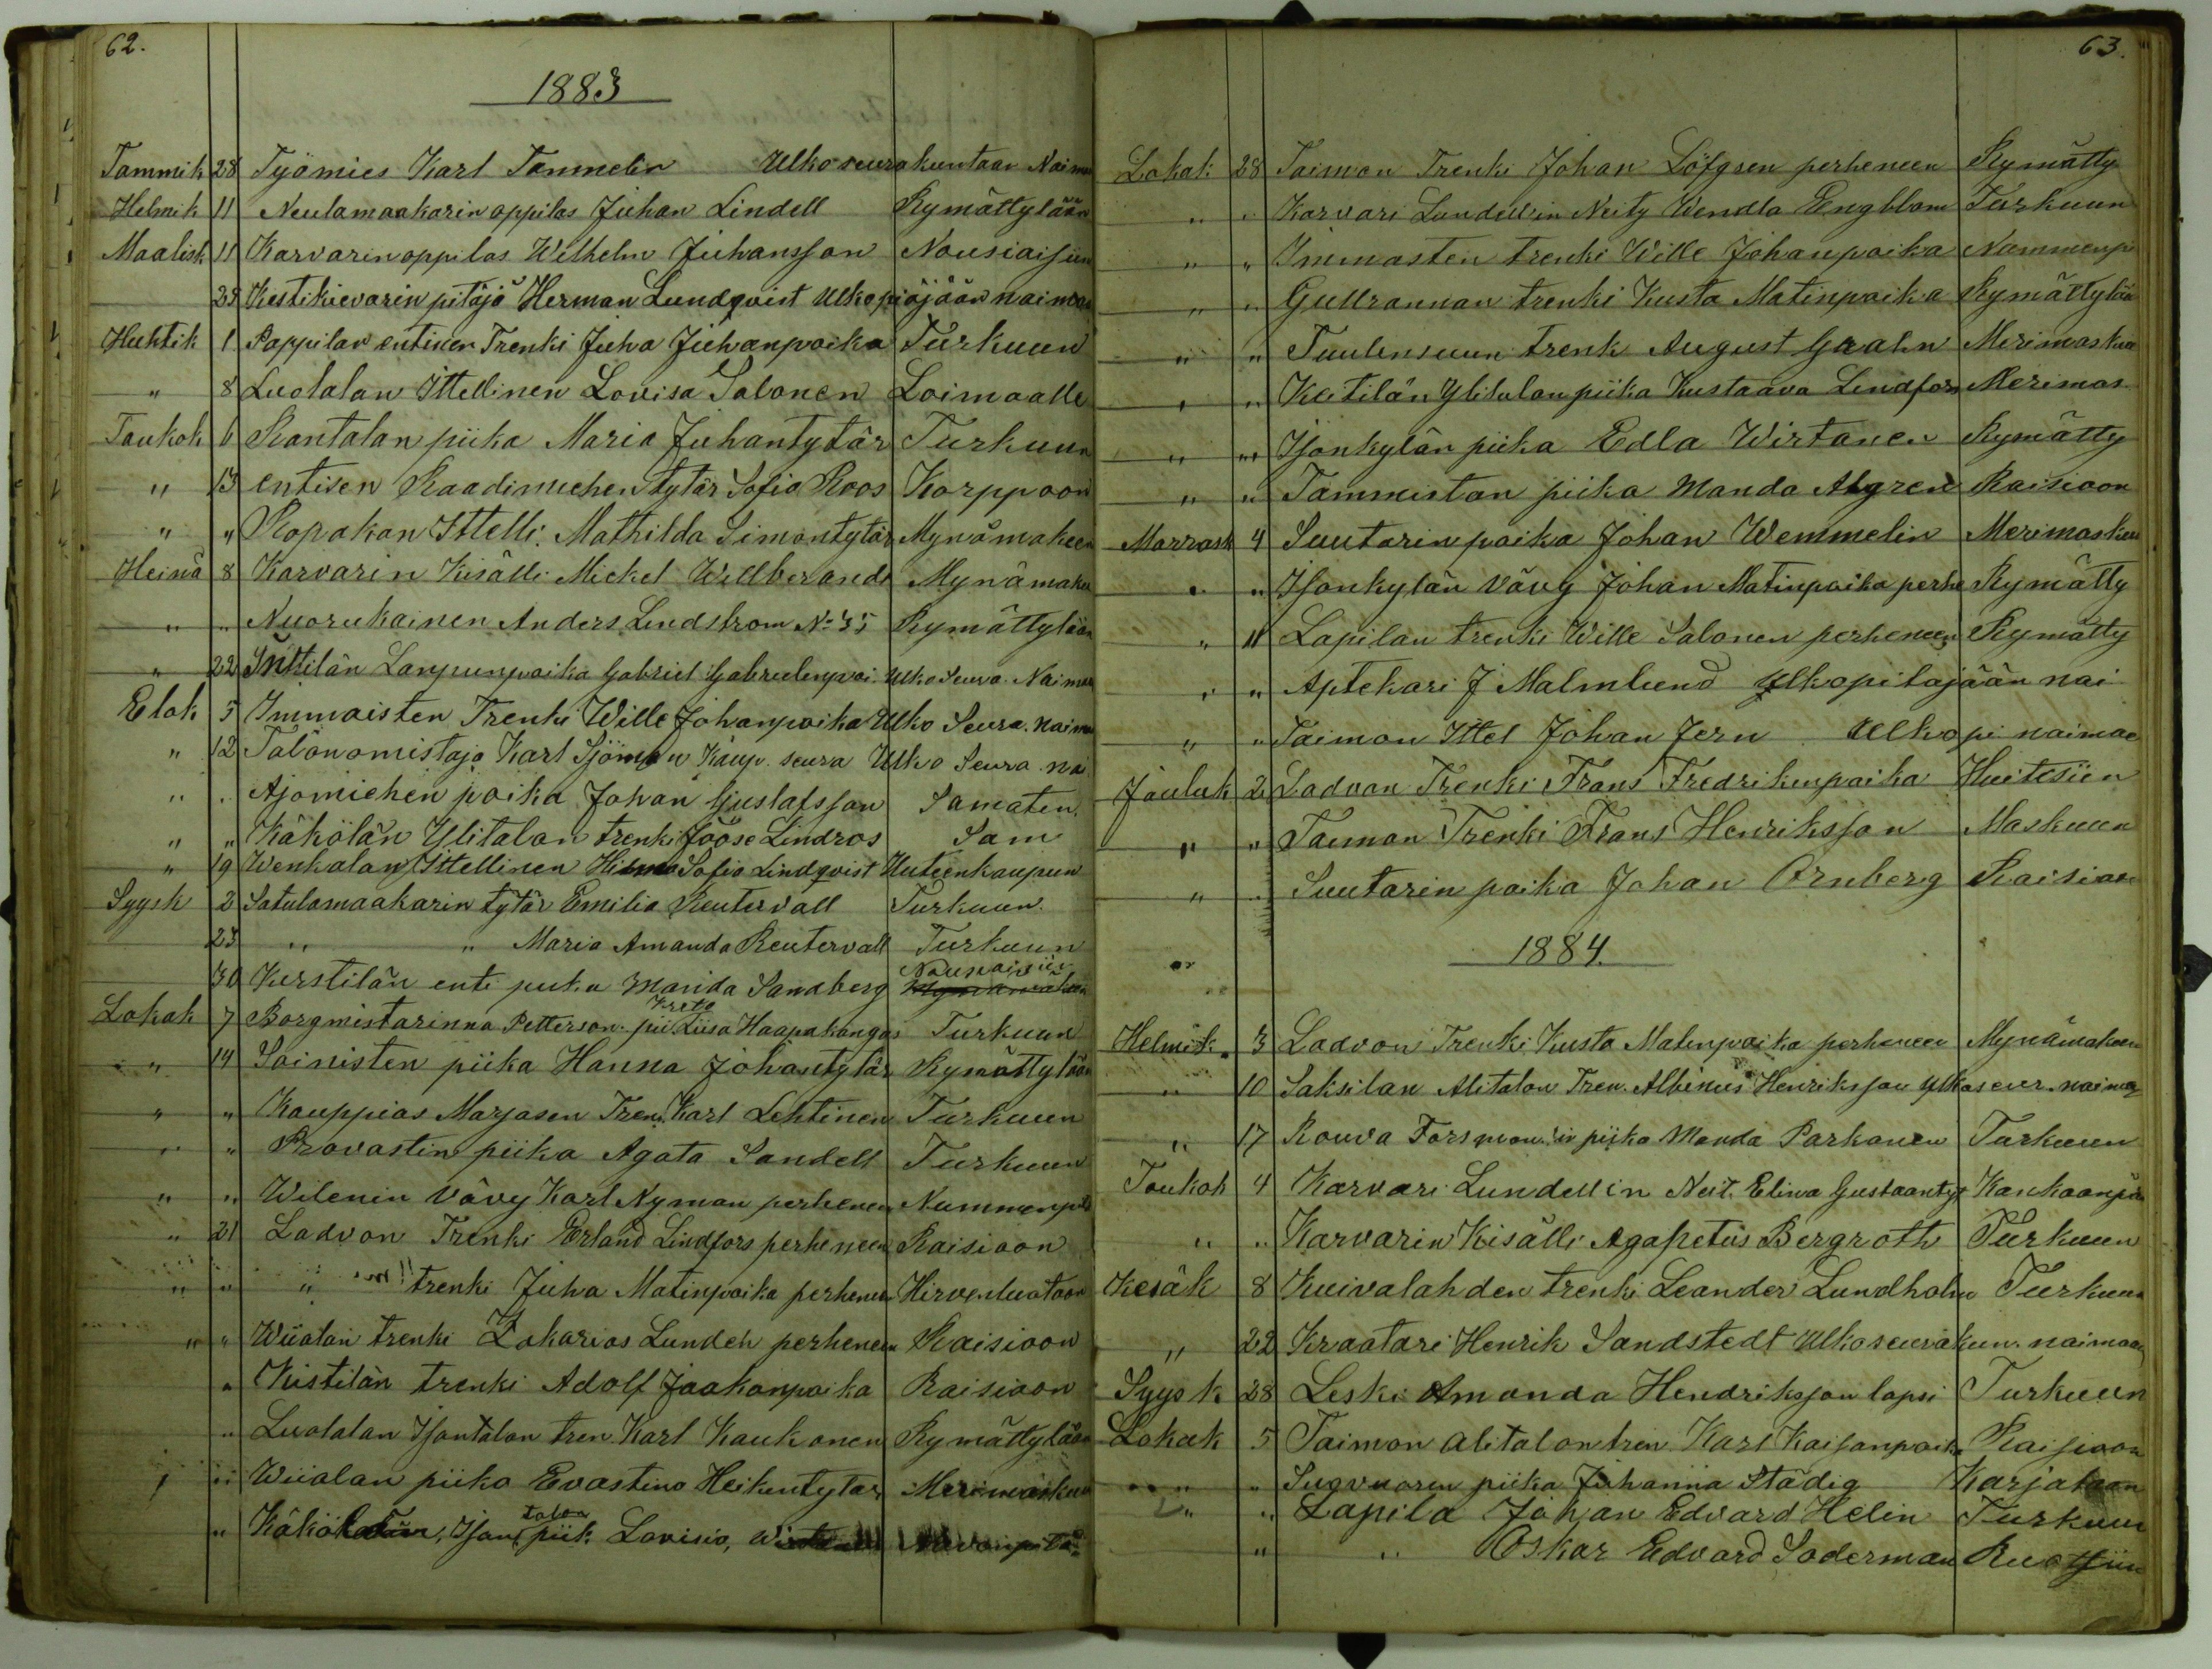 62.
1883
Tammik 28 Työmies Karl Tammelin Ulko seurakuntaan Naima
Helmik 11 Neulamaakarin oppilas Juhan Lindell Rymättylään
Maalisk 11 Karvarin oppilas Wilhelm Juhansson Nousiaisiin
25 Kestikievarin pitäjä Herman Lundqvist Ulko pitäjään naimaan
Huhtik 1 Pappilan entinen Trenki Juha Juhanpoika Turkuun
" 8 Luolalan Ittellinen Lovisa Salonen Loimaalle
Toukok 6 Rantalan piika Maria Juhantytär Turkuun
" 13 entisen Raadimiehen tytär Sofia Roos Korppoon
" " Ropakan Ittelli. Mathilda Simontytär Mynämakeen
Heinä 8 Karvarin Kisälli Mickel Willberandt Mynämake
" " Nuorukainen Anders Lindstrom No 35 Rymättylään
" 22 Inttilän Lanpunpoika Gabriel Gabrielinpoi. Ulko Seura. Naimaa
Elok 5 Immaisten Trenki Wille Johanpoika Ulko Seura. naima
" 12 Talonomistaja Karl Sjöman Kaup. seura Ulko Seura na
" " Ajomiehen poika Johan Gustafsson Samaten.
" " Käkölän Ylitalon trenki Jööse Lindros Sam
" 19 Wenkalan Ittellinen Hilma Sofia Lindqvist Uuteenkaupun
Syysk 2 Satulamaakarin tytär Emilia Reutervall Turkuun.
23 " " Maria Amanda Reutervall Turkuun
30 Kerstilän enti piika Manda Sandberg Nousiaisiin
Lokak 7 Borgmistarinna Petterson. pii Krete Liisa Haapakangas Turkuun
" 14 Soinisten piika Hanna Johantytär Rymättylään
" " Kauppias Marjasen Tren. Karl Lehtinen Turkuun
" " Provastin piika Agata Sandell Turkuun
" " Wilenin Vävy Karl Nyman perheneen Nummenpä
" 21 Ladvon Trenki Erland Lindfors perheneen Raisioon
" " " trenki Juha Matinpoika perheneen Hirvenluotoon
" " Wiialan trenki Zakarias Lunden perheneen Raisioon
" Kistilän trenki Adolf Jaakonpoika Raisioon
" Luolalan Isontalon tren. Karl Kaukonen Rymättylään
" Wiialan piika Evastina Heikintytär Merimaskuu
" Käkölän, Ison talon piik. Lovisia,
63.
Lokak 28 Taimon Trenki Johan Löfgren perheneen Rymätty
" " Karvari Lundellin Neity Wendla Engblom Turkuun
" " Immasten trenki Wille Johanpoika Nummenp
" " Gullrannan trenki Kusta Matinpoika Rymättylää
" " Tuulensuun trenk August Grahn Merimasku
" " Keitilän Ylitulan piika Kustaava Lindfors Merimas
" " Isonkylän piika Edla Wirtanen Rymätty
" " Tammistan piika Manda Algren Raisioon
Marrask 4 Suutarin poika Johan Wemmelin Merimaskuu
" " Isonkylän Vävy Johan Matinpoika perhe Rymätty
" 11 Lapilan trenki Wille Salonen perheneen Rymätty
" " Aptekari J Malmlund Ulkopitajään nai
" " Taimon Ittel Johan Jern Ulkopi naimaa
Jouluk 2 Ladvon Trenki Frans Fredrikinpoika Huitesiin
" " Taimon Trenki Frans Henriksson Maskuun
" " Suutarin poika Johan Ornberg Raisioo
1884.
Helmik. 3 Ladvon Trenki Kusta Matinpoika perheneen Mynämakeen
" 10 Saksilan Alitalon Tren. Albinus Henriksson Ulkoseur. naima
" 17 Rouva Forsman'in piika Manda Parkanen Turkuun
Toukok 4 Karvari Lundellin Neit. Elina Gustaanty Kankaanpä
" " Karvarin Kisälli Agapetus Bergroth Turkuun
Kesäk 8 Kuivalahden trenki Leander Lundholm Turkuun
" 22 Kraatari Henrik Sandstedt Ulkoseurakun. naimaan
Syysk 28 Leski Amanda Hendriksson lapsi Turkuun
Lokak 5 Taimon Alitalon tren Karl Kaisanpoika Raisioon
" " Suovuoren piika Johanna Städig Karjalaan
" " Lapila Johan Edvard Helin Turkuun
" " Oskar Edvard Soderman Ruotsiin